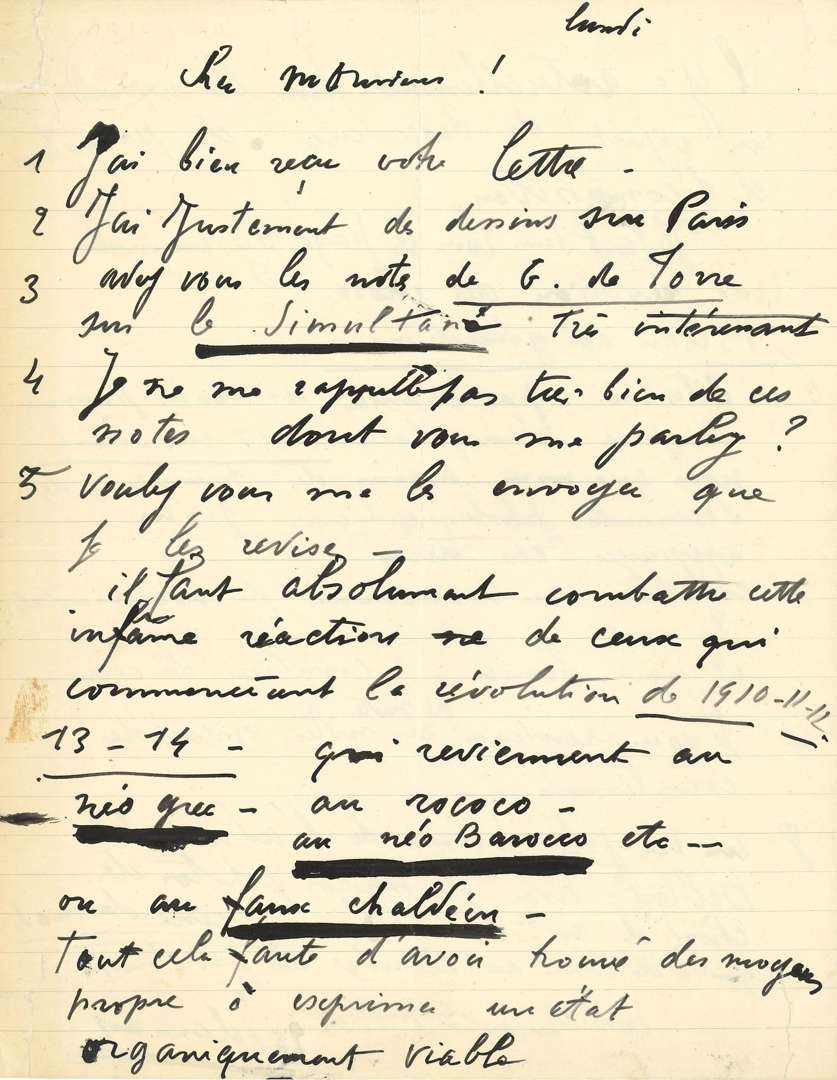 lundi
Cher monsieur !
1 J'ai bien reçu votre lettre -
2 J'ai Justement des dessins sur Paris
3 avez vous les notes de G. de Torre
sur le Simultané très intéressant
4 Je ne me rappelle pas très bien de ces
notes dont vous me parlez ?
5 Voulez vous me les envoyer que
Je les revise -
il faut absolument combattre cette
infâme réaction de ceux qui
la révolution de 1910-11-12
13 - 14 - qui reviennent au
néo grec - au rococo -
au néo Barocco etc --
ou au faux chaldéen -
Tout cela faute d'avoir trouvé des moyens
propre à exprimer un état
organiquement viable